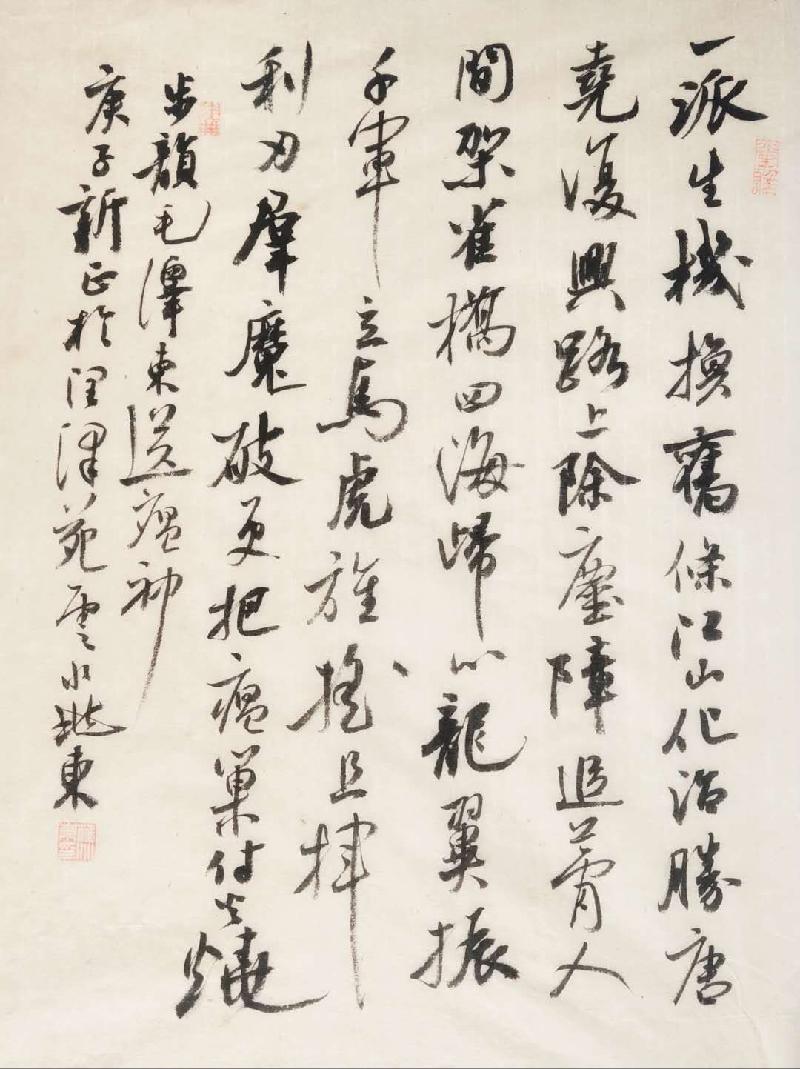 一派生機換舊條江山化治勝唐
堯復興路上除塵障追夢人
間架雀橋四海歸心龍翼振
千軍立馬虎旌搖且揮
利刃羣魔破更把瘟巢付火燒
步韻毛澤東送瘟神
庚子新正於苑雲東